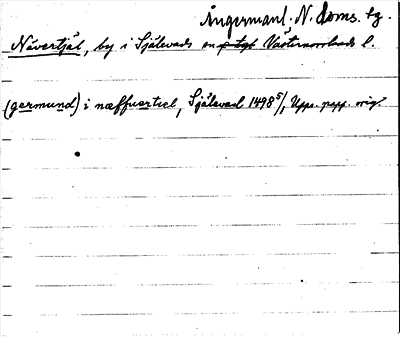 Ångermanl. N. doms. sg.
Nävertjäl, by i Själevads sn Västernorrlands l.
(germund) i næffuertiel, Själevad 1498 5/1, Upps. papp. orig.